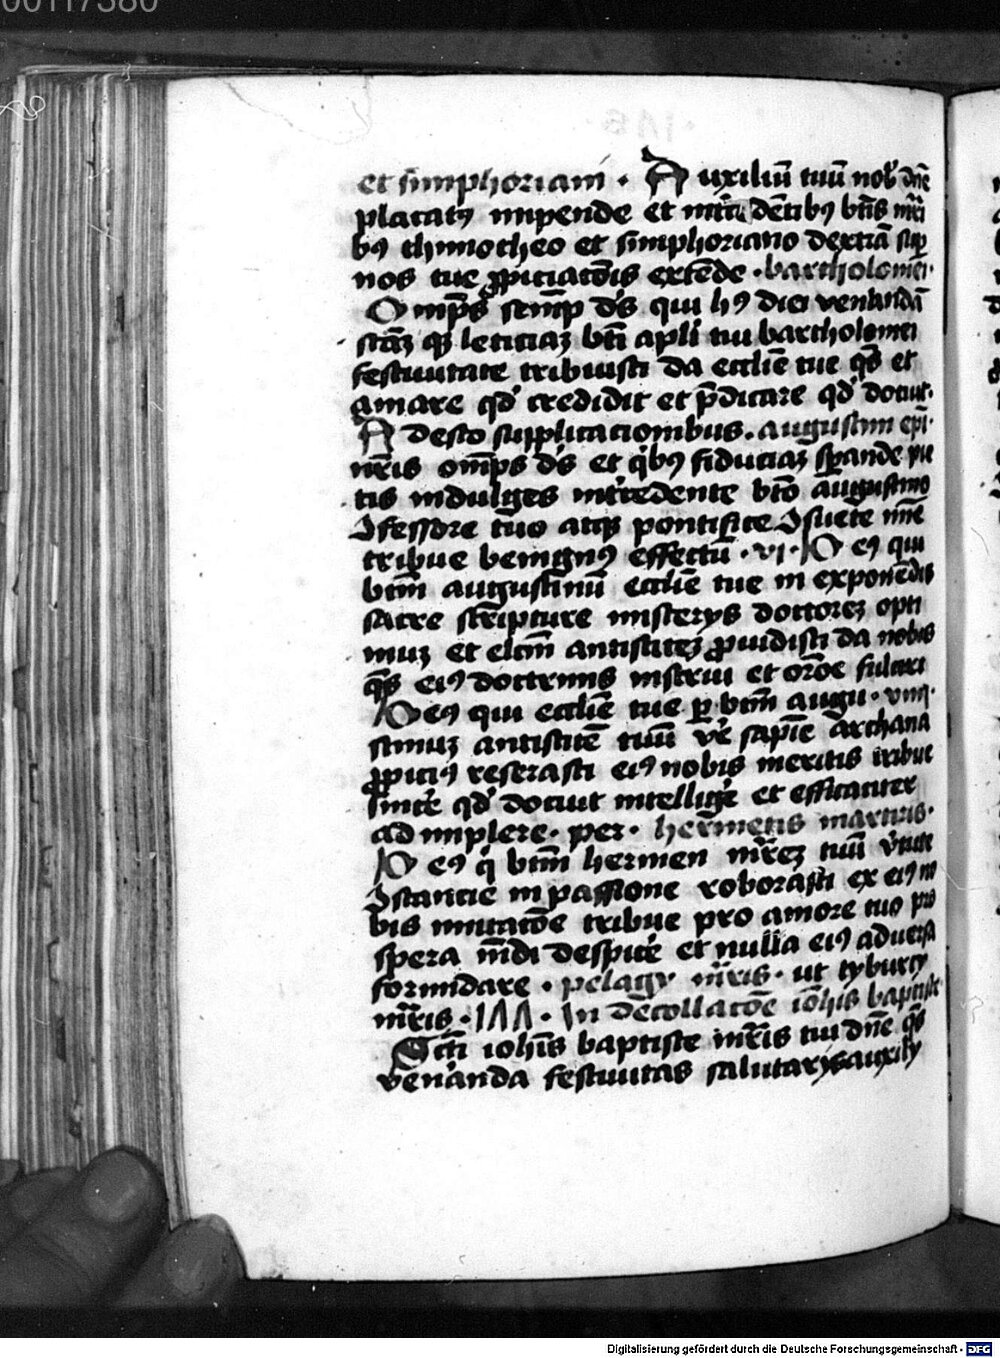 00117380
et simphoriani · Auxiliū tuū nob̄ dn̄e
placatꝰ impende et int̄cedētibꝫ btīs mr̄i
bꝫ thimotheo et simphoriano dextrā suꝑ
nos tue ꝓpiciatōis extēde · bartholomei ·
Omp̄s semp̄ ds̄ qui hꝰ diei venerandā
scāꝫ qꝫ leticiaꝫ btī apli tui bartholomei
festiuitate tribuisti da ecclīe tue qs̄ et
amare qd̄ credidit et p̄dicare qd̄ docuit ·
Adesto supplicacionibus · augustini ep̄i ·
nr̄is omp̄s ds̄ et qͥbꝫ fiduciaꝫ sꝑande pie
tis indulges int̄cedente btō augustino
ꝯfessore tuo atqꝫ pontifice ꝯsuete mīe
tribue benignꝰ effectū · vi · Deꝰ qui
btm̄ augustinū ecclīe tue in exponēdis
sacre scripture misterijs doctoreꝫ opti
muꝫ et elcm̄ antistiteꝫ ꝓuidisti da nobis
qs̄ eiꝰ doctrinis instrui et orōe fulciri
Deꝰ qui ecclīe tue ꝑ btm̄ augu · vnīꝗ
simuꝫ antistitē tuū ve᷑ sapīe archana
ꝓpiciꝰ reserasti eiꝰ nobis meritis tribue
sinc̄e qd̄ docuit intellige᷑ et efficaciter
adimplere · per · hermetis martiris ·
Deꝰ qͥ btm̄ hermen mr̄eꝫ tuū v̄tute
ꝯstancie in passione roborasti ex eiꝰ no
bis imitatōe tribue pro amore tuo pro
spera mūdi despice᷑ et nulla eiꝰ aduersa
formidare · pelagij mr̄is · ut tyburcij
mr̄is · 1ΛΛ · In decollacōe ioh̄is baptiste
Scti ioh̄is baptiste mr̄is tui dn̄e qs̄
ven̄anda festiuitas salutarijs auxilij
Digitalisierung gefördert durch die Deutsche Forschungsgemeinschaft - DFG